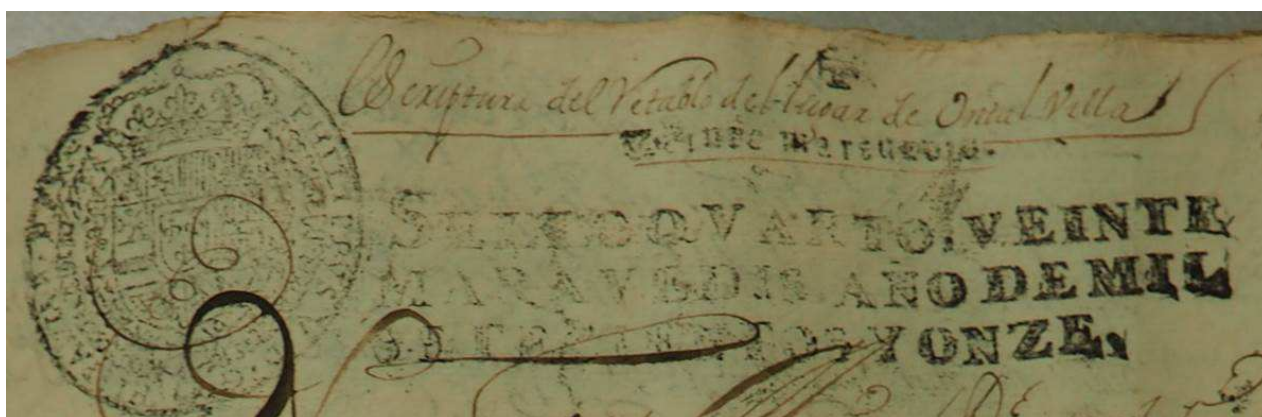 Scriptura del Retablo del lugar de Villa
Veinte maravedis.
SELLO QVARTO, VEINTE
MARAVEDIS, AÑO DE MIL
SETECIENTOS Y ONZE.